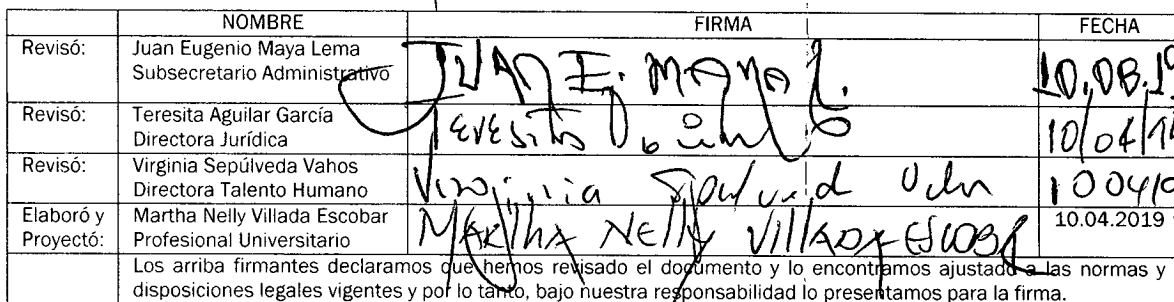 NOMBRE FIRMA FECHA
Revisó: Juan Eugenio Maya Lema
Subsecretario Administrativo
JUAN E. MAYA L.
Revisó: Teresita Aguilar García
Directora Jurídica
Teresita
Revisó: Virginia Sepúlveda Vahos
Directora Talento Humano
Virginia
Elaboró y Proyectó: Martha Nelly Villada Escobar
Profesional Universitario
MARTHA NELLY VILLADA ESCOBAR
10.04.2019
Los arriba firmantes declaramos que hemos revisado el documento y lo encontramos ajustado a las normas y
disposiciones legales vigentes y por lo tanto, bajo nuestra responsabilidad lo presentamos para la firma.